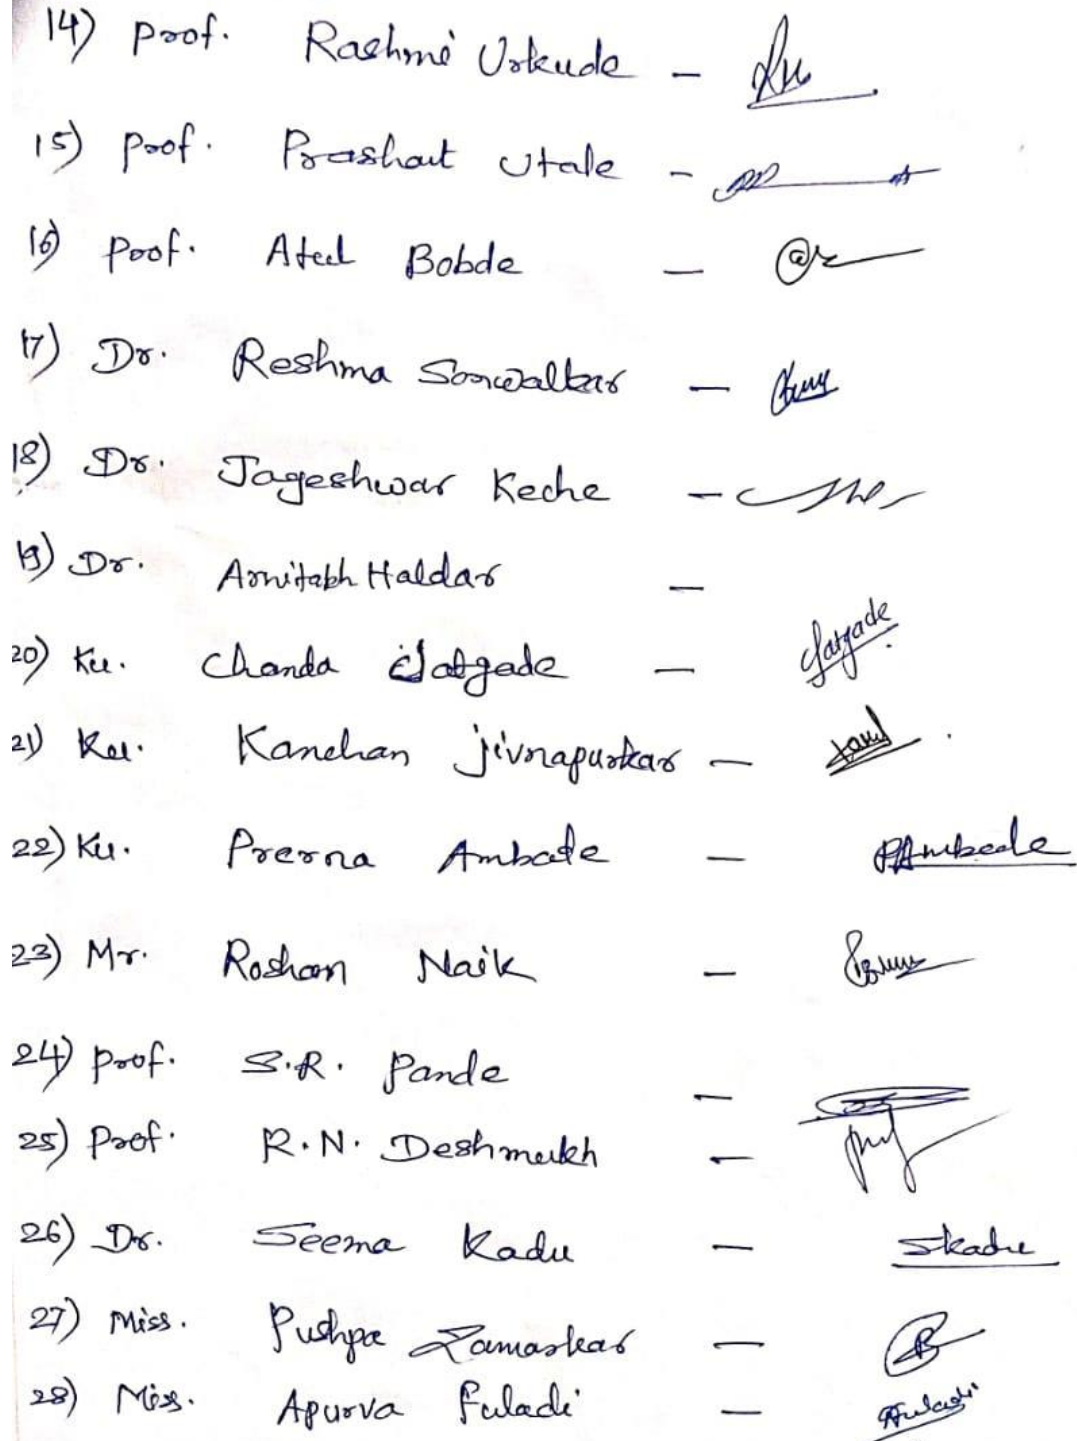 14) Prof. Rashmi Urkude -
15) Prof. Prashant Utale -
16) Prof. Atul Bobde -
17) Dr. Reshma Sonwalkar -
18) Dr. Jageshwar Keche -
19) Dr. Amitabh Haldar -
20) Ku. Chanda Gatgade - Gatgade
21) Ku. Kanchan Jivnapurkar -
22) Ku. Prerna Ambade - PAmbade
23) Mr. Roshan Naik -
24) Prof. S.R. Pande -
25) Prof. R.N. Deshmukh -
26) Dr. Seema Kadu - SKadu
27) Miss. Pushpa Zamarkar -
28) Miss. Apurva Fuladi - AFuladi